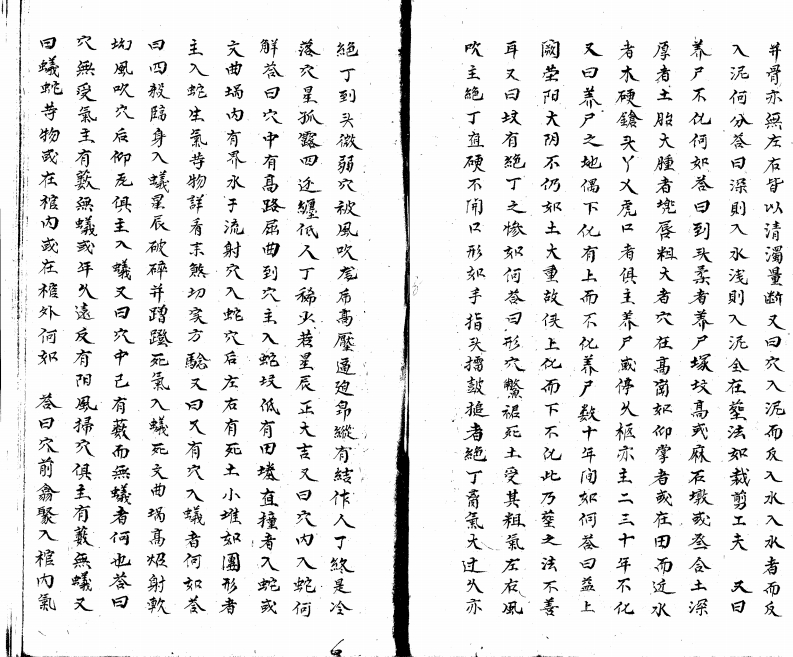 并骨亦無左右皆以清濁量断又曰穴入泥而反入水入水者而反
入泥何分答曰深則入水浅則入泥全在塟法如裁剪工夫 又曰
养尸不化何如答曰到头柔者养尸塚坟高或麻石墩或丞合土深
厚者土胎大腫者堍唇粗大者穴在高崗如仰掌者或在田而近水
者木硬鎗头丫乂虎口者俱主养尸或停久柩亦主二三十年不化
又曰养尸之地偶下化有上而不化养尸数十年间如何答曰益上
阙莹阳大阴不仍如土大重故伕上化而下不化此乃塟之法不善
耳又曰坟有絕丁之惨如何答曰形穴鱉裙死土受其粗氣左右風
吹主絕丁直硬不開口形如手指头擂鼓搥者絕丁脣氣大过久亦
絕丁到头微弱穴被風吹虎布高壓逼廹帛縱有結作人丁終是冷
落穴星孤露四近纏低人丁稀少若星辰正大吉又曰穴内入蛇何
觧答曰穴中有高路屈曲到穴主入蛇坟低有田塝直撞者入蛇或
文曲堝内有界水于流射穴入蛇穴后左右有死土小堆如團形者
主入蛇生氣芋物詳看末煞切実方驗又曰又有穴入蟻者何如荅
曰四殺臨身入蟻星辰破碎并蹭蹬死氣入蟻死文曲堝高煅射軟
拗風吹穴后仰瓦俱主入蟻又曰穴中已有藪而無蟻者何也荅曰
穴無受氣主有藪無蟻或年久遠反有阴風掃穴俱主有藪無蟻又
曰蟻蛇芋物或在棺内或在棺外何如 荅曰穴前翕聚入棺内氣